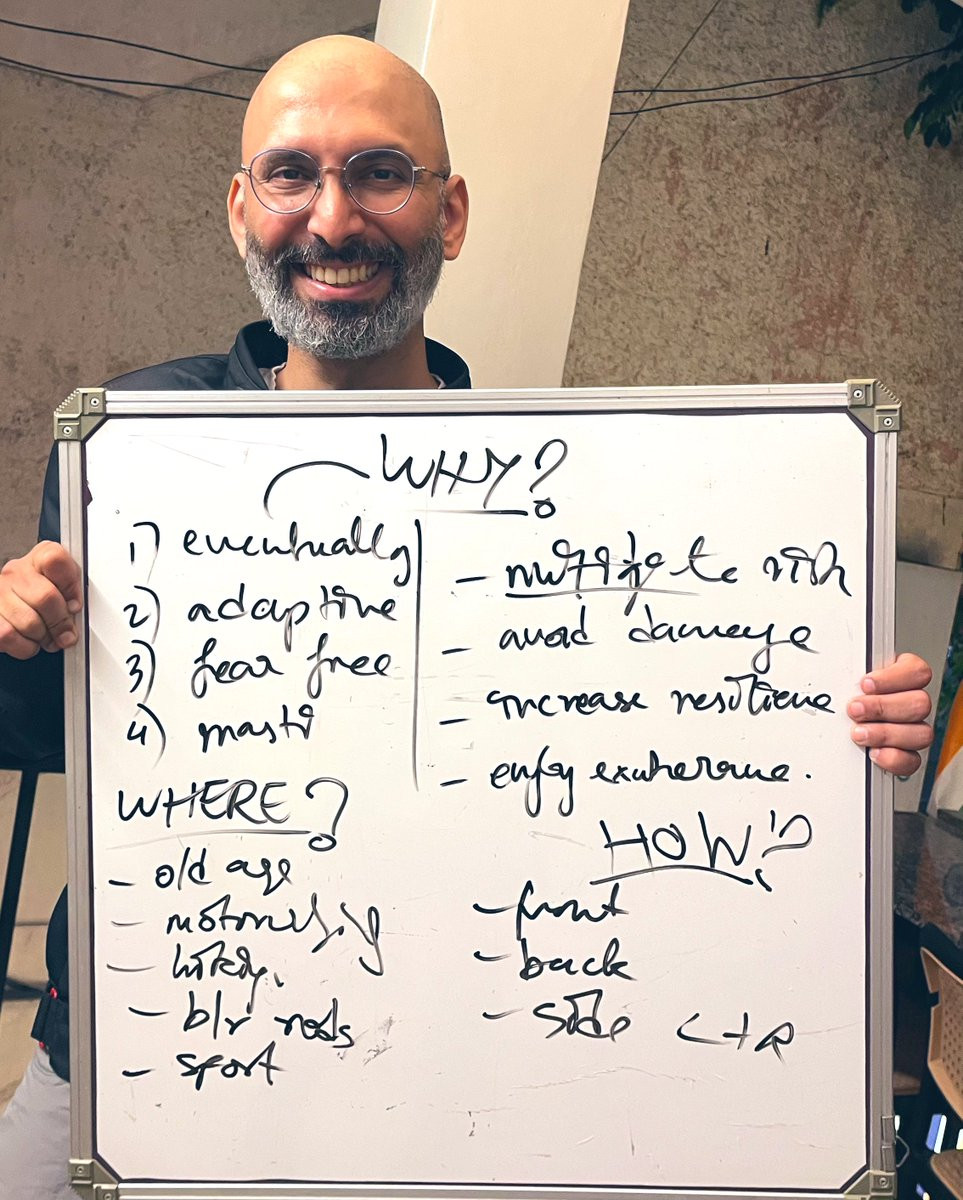 WHY?
1) eventually
2) adaptive
3) fear free
4) masti
- mitigate risk
- avoid damage
- increase resilience
- enjoy exuberance.
WHERE?
- old age
- motorcycling
- hiking.
- blr roads
- sport
HOW?
- front
- back
- side L+R